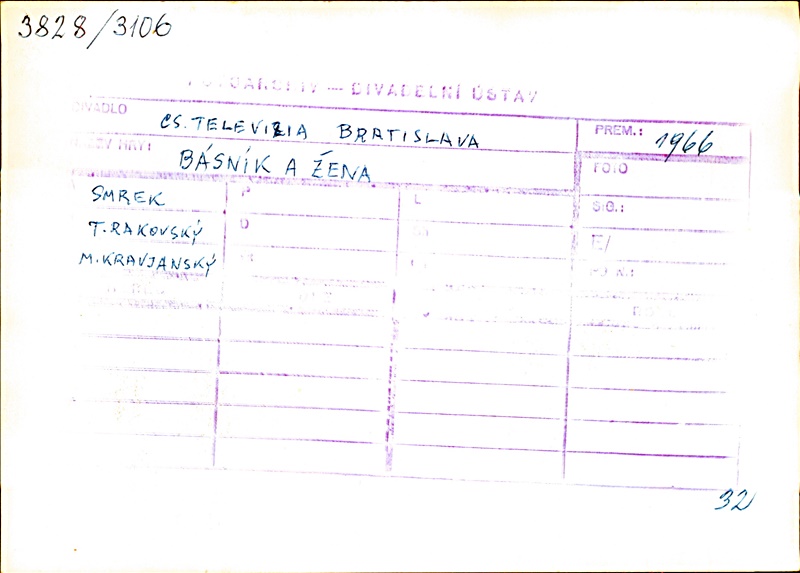 3828/3106
FOTOARCHIV — DIVADELNÍ ÚSTAV
DIVADLO ČS. TELEVIZIA BRATISLAVA PREM.: 1966
NÁZEV HRY: BÁSNÍK A ŽENA FOTO
SMREK P L SIG.:
T. RAKOVSKÝ O E/
M. KRAVJANSKÝ
32